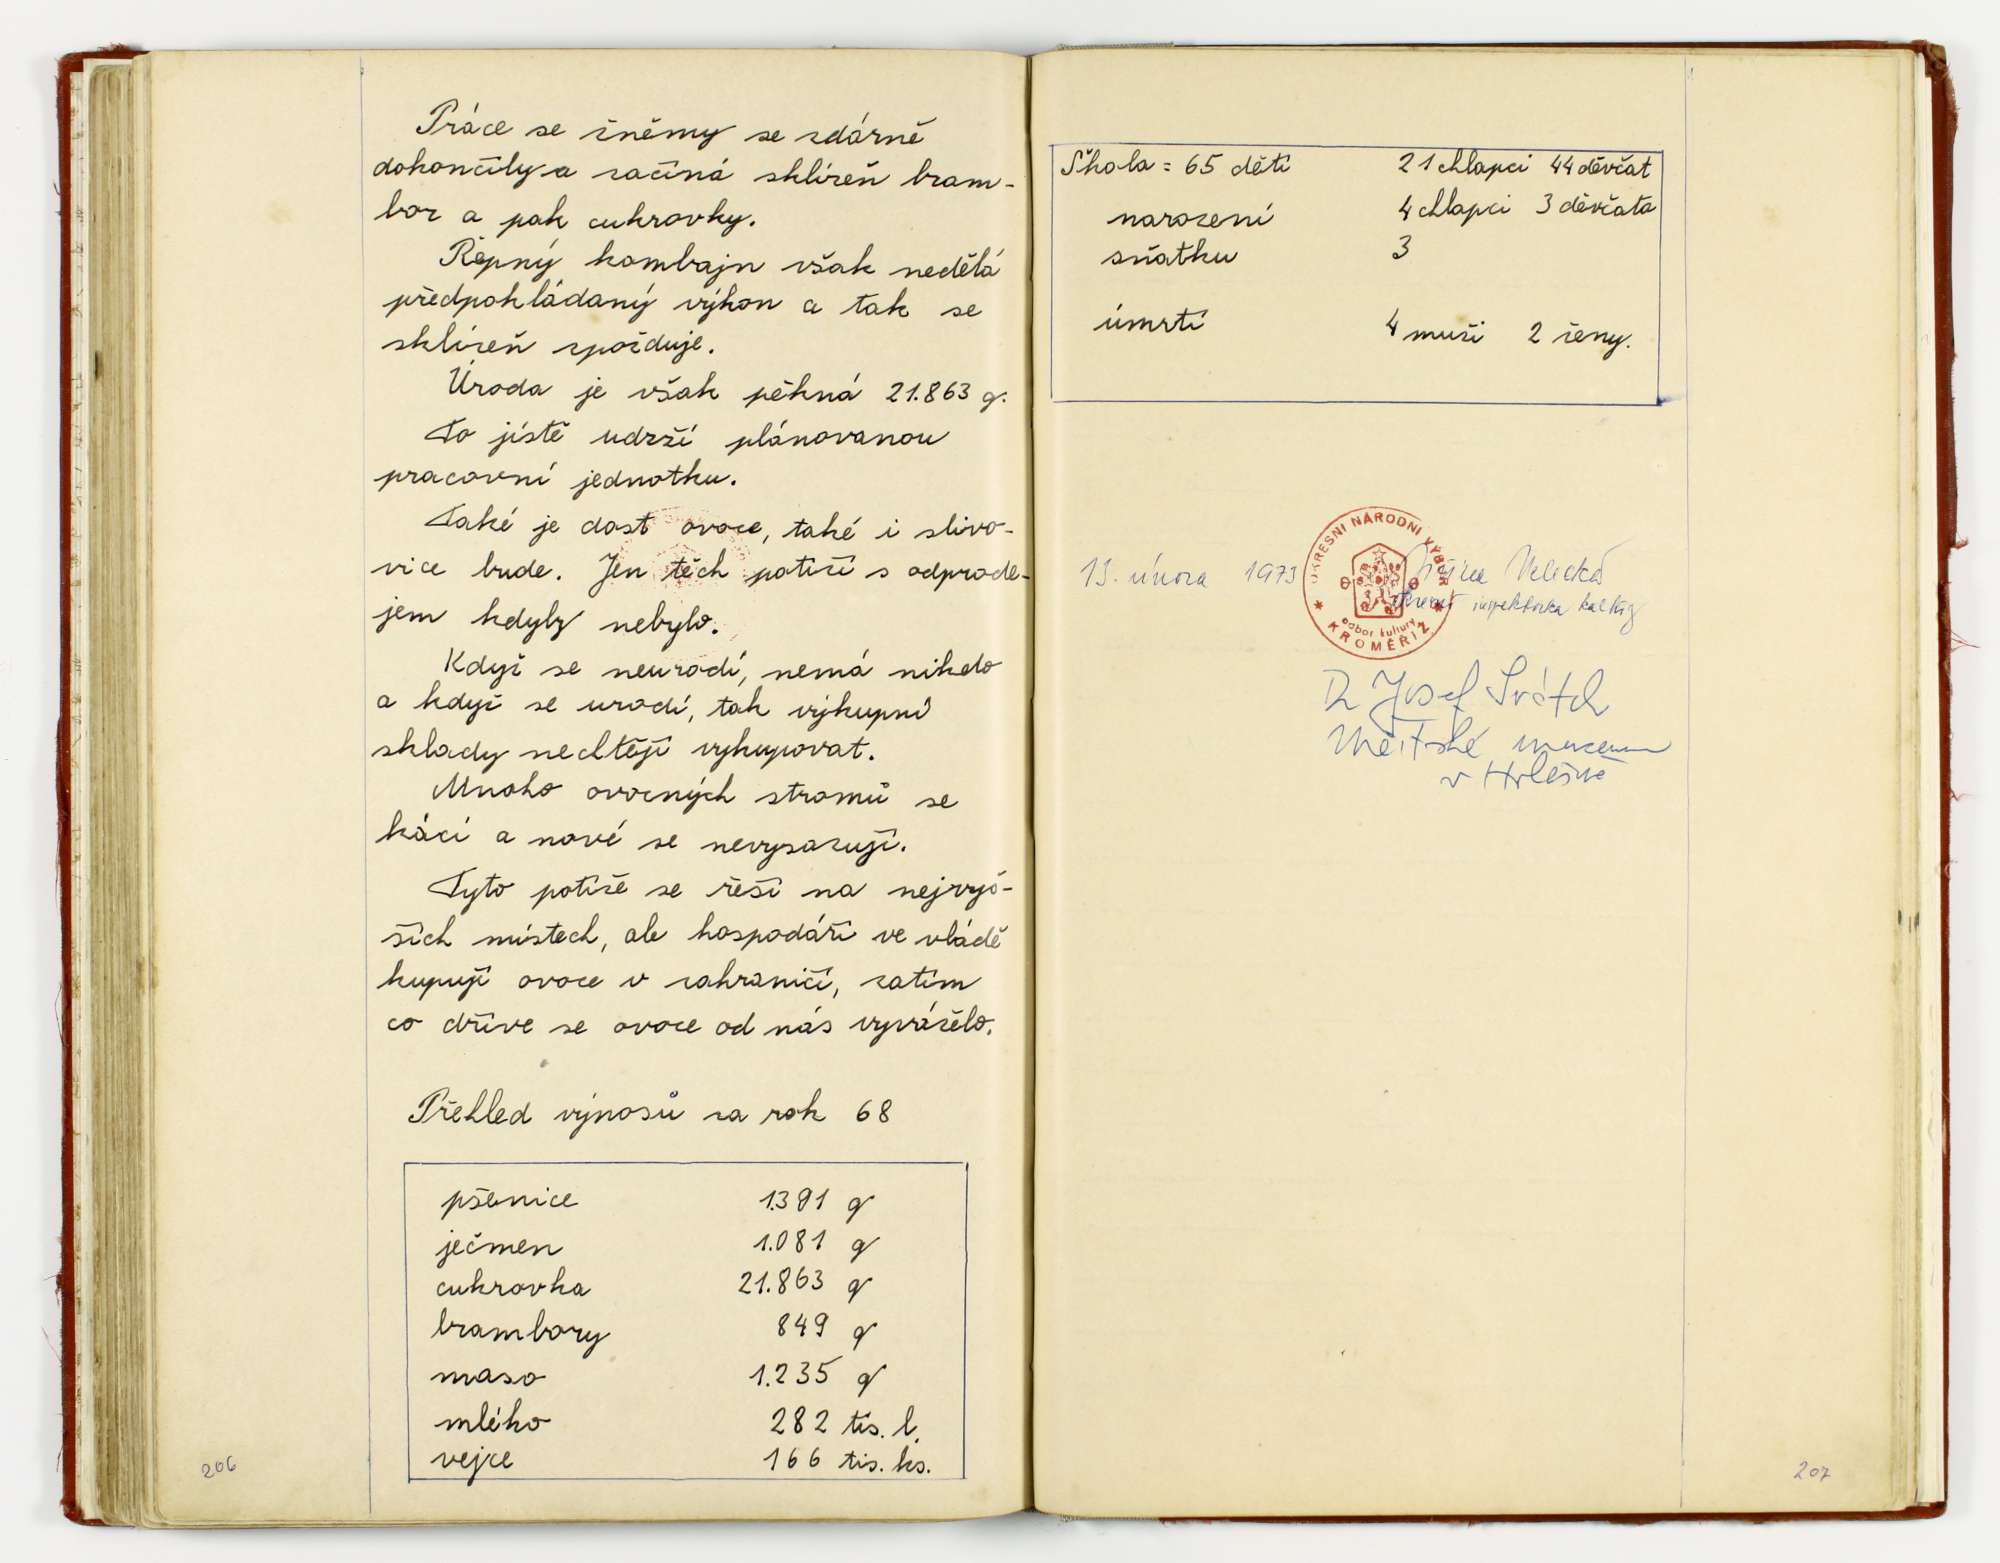 Práce se žněmy se zdárně
dokončily a začíná sklizeň bram-
bor a pak cukrovky.
Řepný kombajn však nedělá
předpokládaný výkon a tak se
sklizeň zpožduje.
Úroda je však pěkná 21.863 q.
To jistě udrží plánovanou
pracovní jednotku.
Také je dost ovoce, také i slivo-
vice bude. Jen těch potíží s odprode-
jem kdyby nebylo.
Když se neurodí, nemá nikdo
a když se urodí, tak výkupní
sklady nechtějí vykupovat.
Mnoho ovocných stromů se
kácí a nové se nevysazují.
Tyto potíže se řeší na nejvyš-
ších místech, ale hospodáři ve vládě
kupují ovoce v zahraničí, zatím
co dříve se ovoce od nás vyváželo.
Přehled výnosů za rok 68
pšenice 1.391 q
ječmen 1.081 q
cukrovka 21.863 q
brambory 849 q
maso 1.235 q
mléko 282 tis. l.
vejce 166 tis. ks.
206
Škola = 65 dětí 21 chlapci 44 děvčat
narození 4 chlapci 3 děvčata
sňatku 3
úmrtí 4 muži 2 ženy.
OKRESNÍ NÁRODNÍ VÝBOR
odbor kultury
KROMĚŘÍŽ
13. února 1973
inspektorka kultury
Dr Josef Svátek
Městské muzeum
v Holešově
207